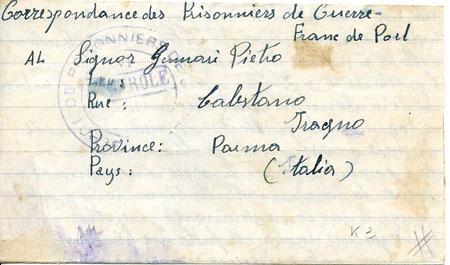 Correspondance des Prisonniers de Guerre-
Franc de Port
AL Signor Gennari Pietro
CONTRÔLE
Rue: Calestano
Fragno
Province: Parma
Pays: (Italia)
K 2